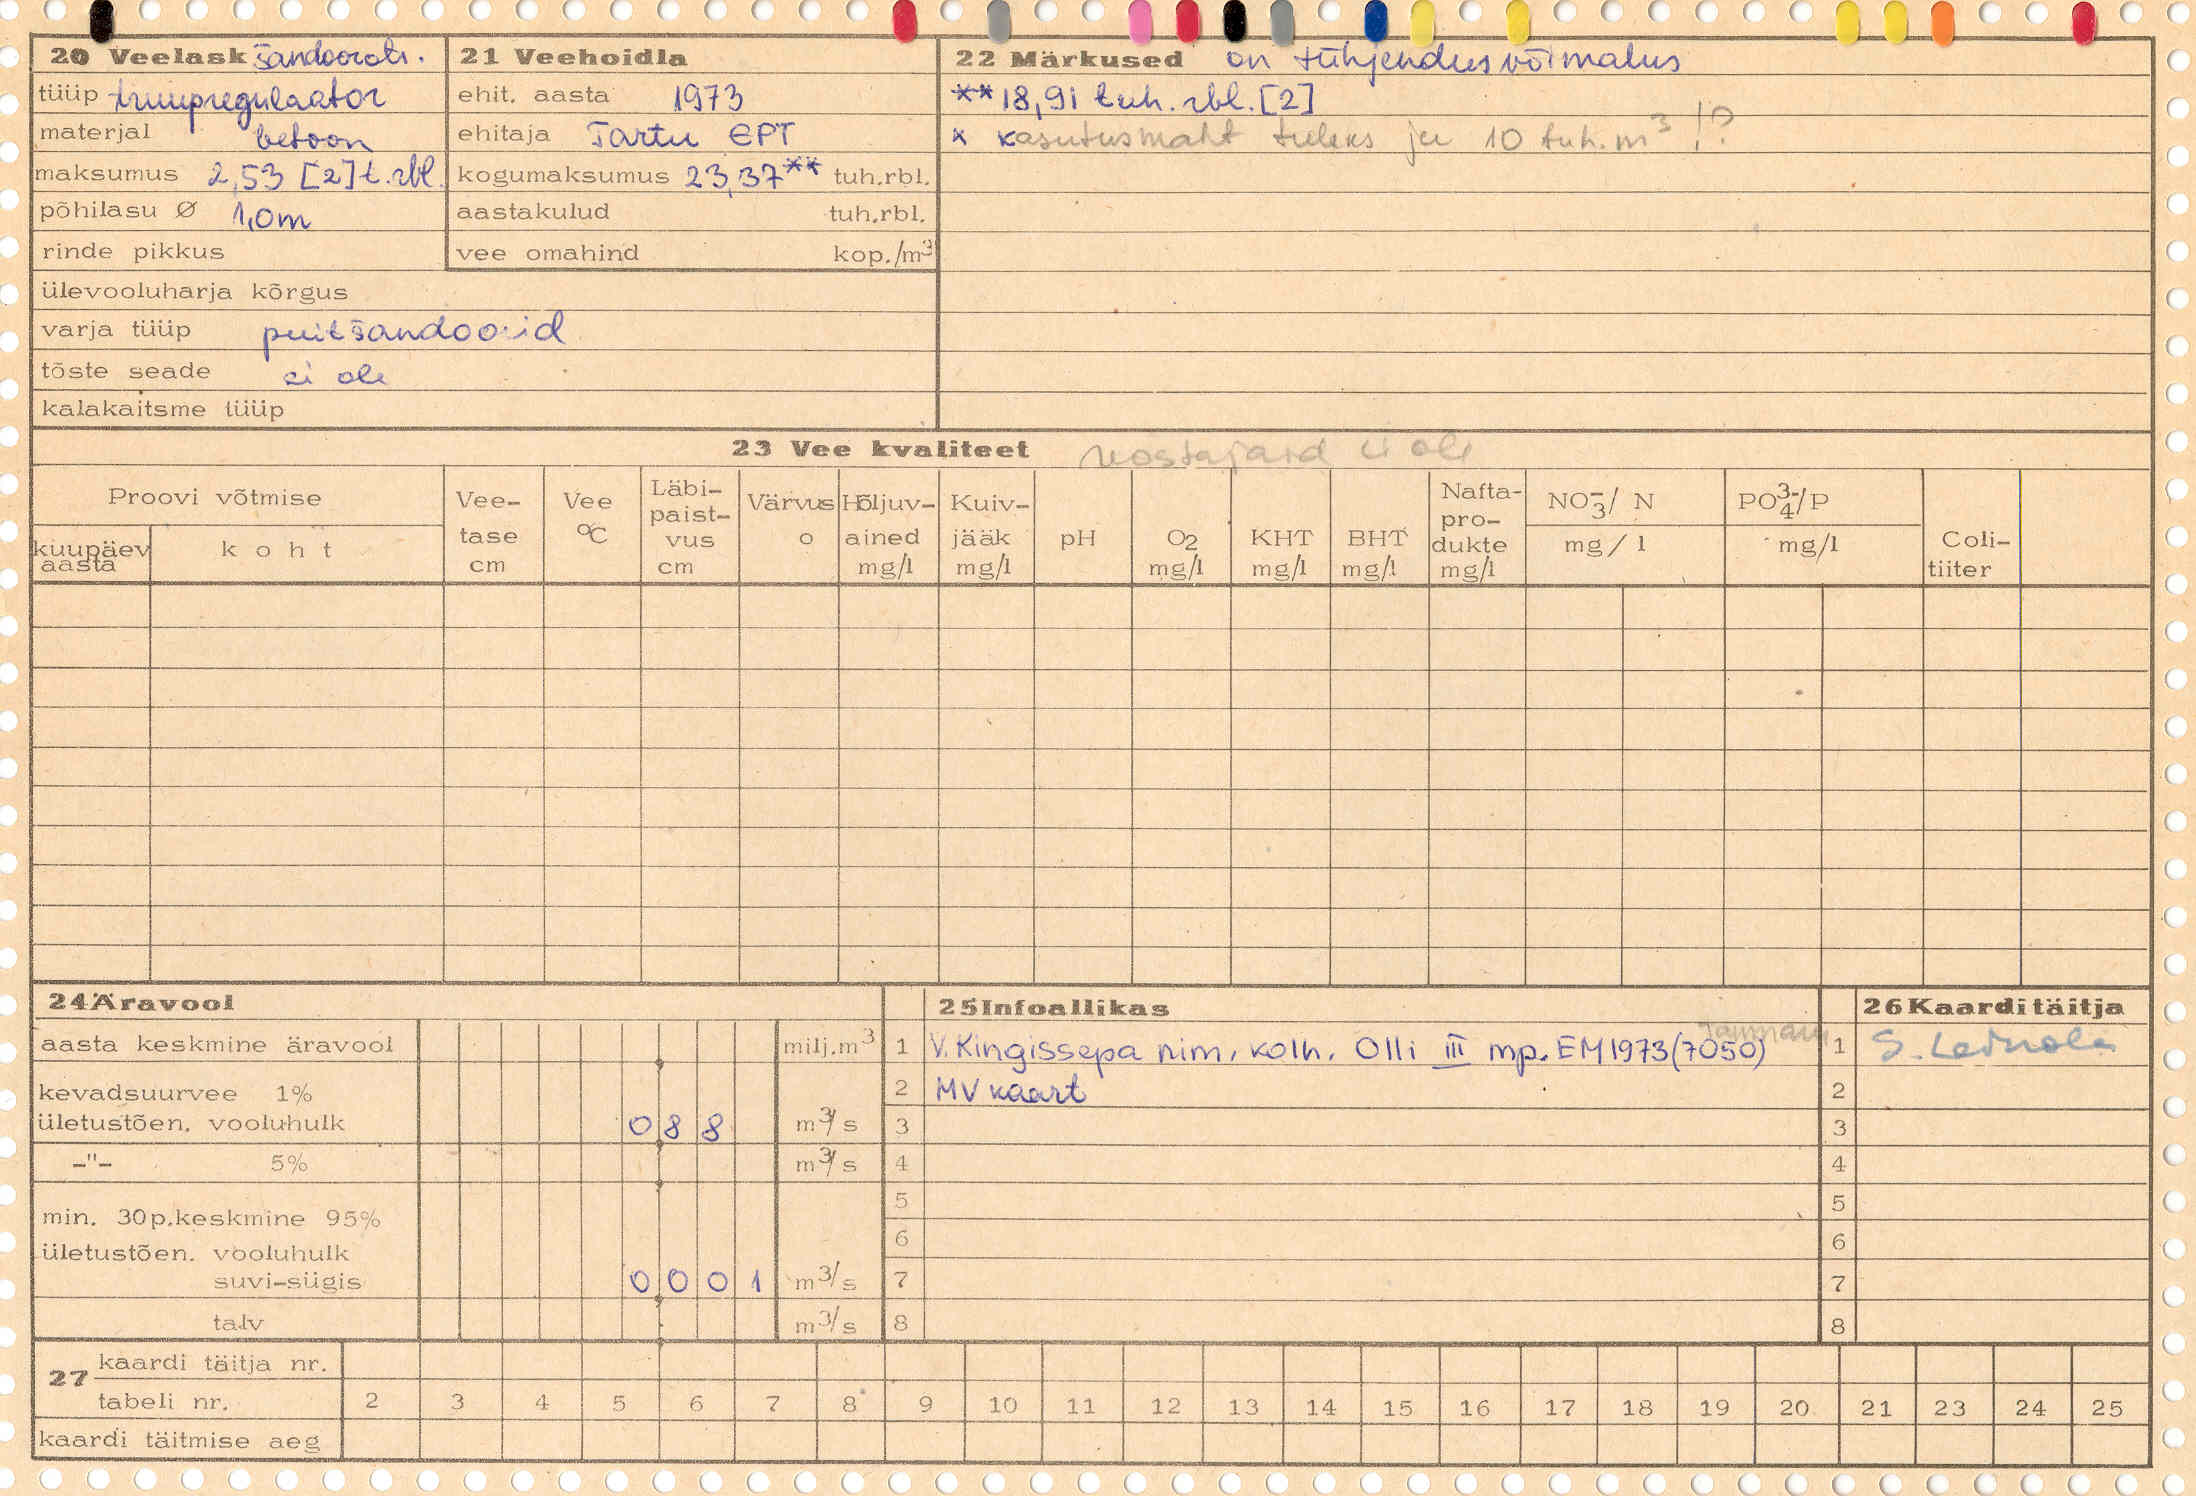 20 Veelask šandoorate.
tüüp truupregulaator
materjal betoon
maksumus 2,53 [2] t. rbl.
põhilasu Ø 1,0m
rinde pikkus
ülevooluharja kõrgus
varja tüüp puitšandoorid
tõste seade ei ole
kalakaitsme tüüp
21 Veehoidla
ehit. aasta 1973
ehitaja Tartu EPT
kogumaksumus 23,37** tuh.rbl.
aastakulud tuh.rbl.
vee omahind kop./m³
22 Märkused on tühjendusvõimalus
** 18,91 tuh. rbl. [2]
* kasutusmaht tuleks ju 10 tuh. m³ !?
23 Vee kvaliteet reostajaid ei ole
Proovi võtmise
kuupäev aasta
koht
Vee- tase cm
Vee °C
Läbi- paist- vus cm
Värvus o
Hõljuv- ained mg/l
Kuiv- jääk mg/l
pH
O₂ mg/l
KHT mg/l
BHT mg/l
Nafta- pro- dukte mg/l
NO₃⁻/ N mg/l
PO₄³⁻/P mg/l
Coli- tiiter
24 Äravool
aasta keskmine äravool milj.m³
kevadsuurvee 1%
ületustõen. vooluhulk 0 8 8 m³/s
-"- 5% m³/s
min. 30p.keskmine 95%
ületustõen. vooluhulk
suvi-sügis 0 0 0 1 m³/s
talv m³/s
25 Infoallikas
1 V. Kingissepa nim. kolh. Olli III mp. EM 1973 (7050)
2 MV kaart
3
4
5
6
7
8
26 Kaarditäitja
1
2
3
4
5
6
7
8
27 kaardi täitja nr.
tabeli nr. 2 3 4 5 6 7 8 9 10 11 12 13 14 15 16 17 18 19 20 21 23 24 25
kaardi täitmise aeg